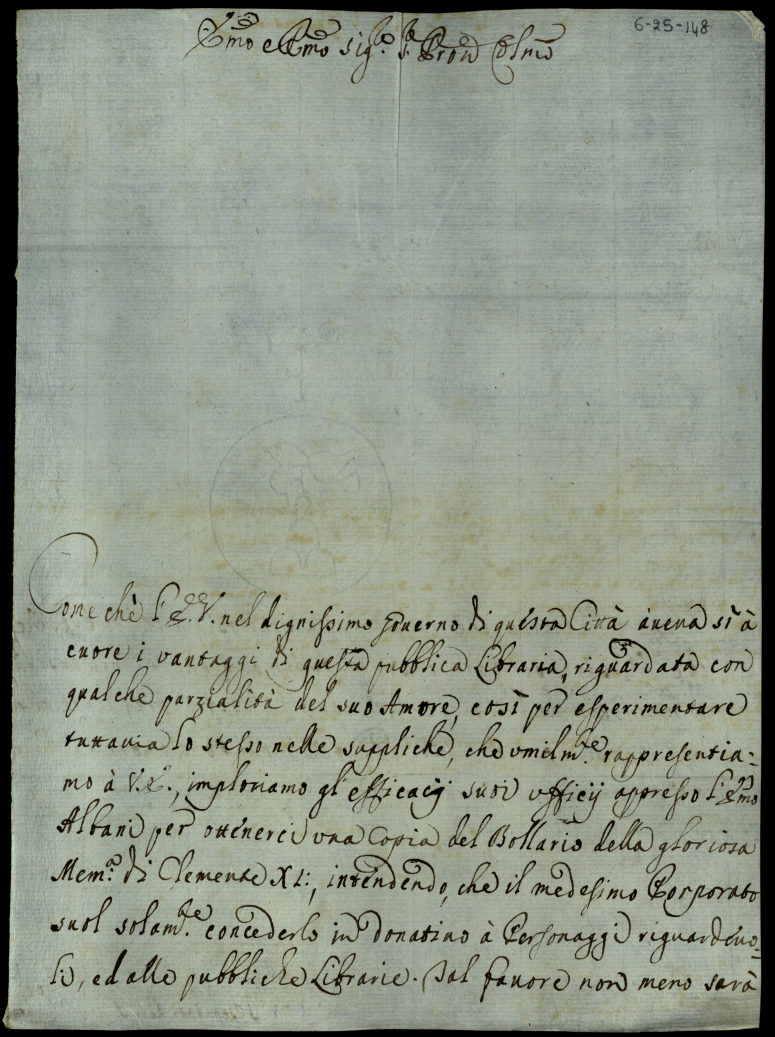 6-25-148
Em̃o e Rm̃o Sig.re S.r Pron Colmo
Come chè l'E.V. nel dignissimo governo di questa Città aueua sì à
cuore i vantaggi di questa pubblica Libraria, riguardata con
qualche parzialità del suo Amore, così per esperimentare
tuttauia lo stesso nelle suppliche, che vmilm.te rappresentia-
mo à V.E., imploriamo gl'efficacij suoi vfficij appresso l'Em̃o
Albani per ottenerci vna Copia del Bollario della gloriosa
Mem.a di Clemente XI:, intendendo, che il medesimo Porporato
suol solam.te concederlo in donatiuo à Personaggi riguardeuo-
li, ed alle pubbliche Librarie. Dal fauore non meno sarà